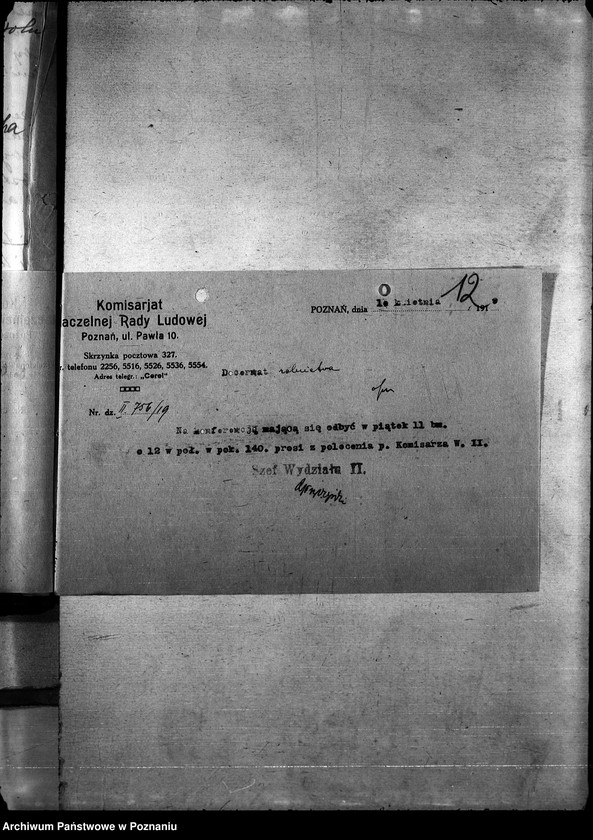 Komisarjat
aczelnej Rady Ludowej
Poznań, ul. Pawla 10.
Skrzynka pocztowa 327.
r. telefonu 2256, 5516, 5526, 5536, 5554.
Adres telegr.: „Cerel"
Nr. dz. II. 756/19
12
POZNAŃ, dnia 10 kwietnia, 1919
Decernat rolnictwa
Na konferencję mającą się odbyć w piątek 11 bm.
o 12 w poł. w pok. 140. prosi z polecenia p. Komisarza W. II.
Szef Wydziału II.
Archiwum Państwowe w Poznaniu